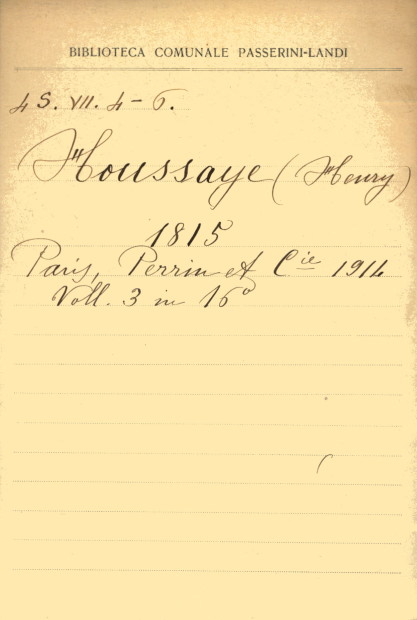 BIBLIOTECA COMUNALE PASSERINI-LANDI
4 S. VII. 4-6.
Houssaye (Henry)
1815
Paris, Perrin et Cie 1914
Voll. 3 in 16°